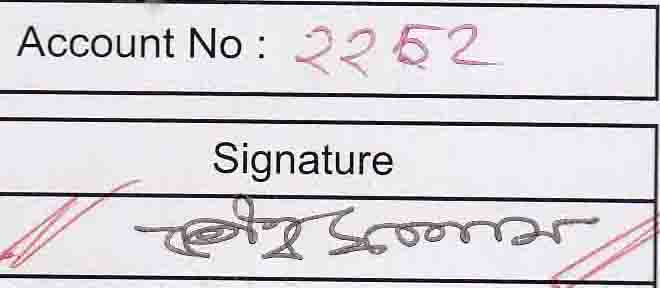 Account No : ২২৫২
Signature